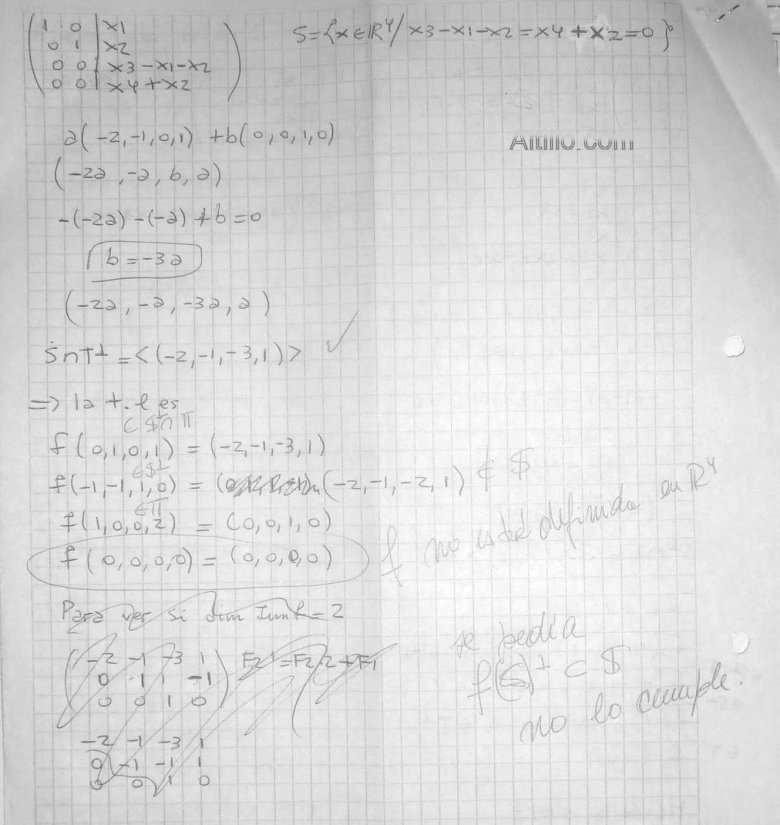 1 0 | x1
0 1 | x2
0 0 | x3-x1-x2
0 0 | x4+x2
S={x∈R⁴/ x3-x1-x2=x4+x2=0}
a(-2,-1,0,1) +b(0,0,1,0)
Altillo.com
(-2a,-a,b,a)
-(-2a)-(-a)+b=0
b=-3a
(-2a,-a,-3a,a)
S∩T⊥=<(-2,-1,-3,1)> ✓
=> la t.l es
∈S∩T
f(0,1,0,1) = (-2,-1,-3,1)
∈S⊥
f(-1,-1,1,0) = (-2,-1,-2,1) ∉ S
∈T
f(1,0,0,2) = (0,0,1,0)
f(0,0,0,0) = (0,0,0,0)
f no está definida en R⁴
Para ver si dim Imf=2
-2 -1 -3 1
0 1 1 -1
0 0 1 0
F2'=F2/2+F1
se pedía
f(S)⊥ ⊂ S
no lo cumple.
-2 -1 -3 1
0 -1 -1 1
0 0 1 0